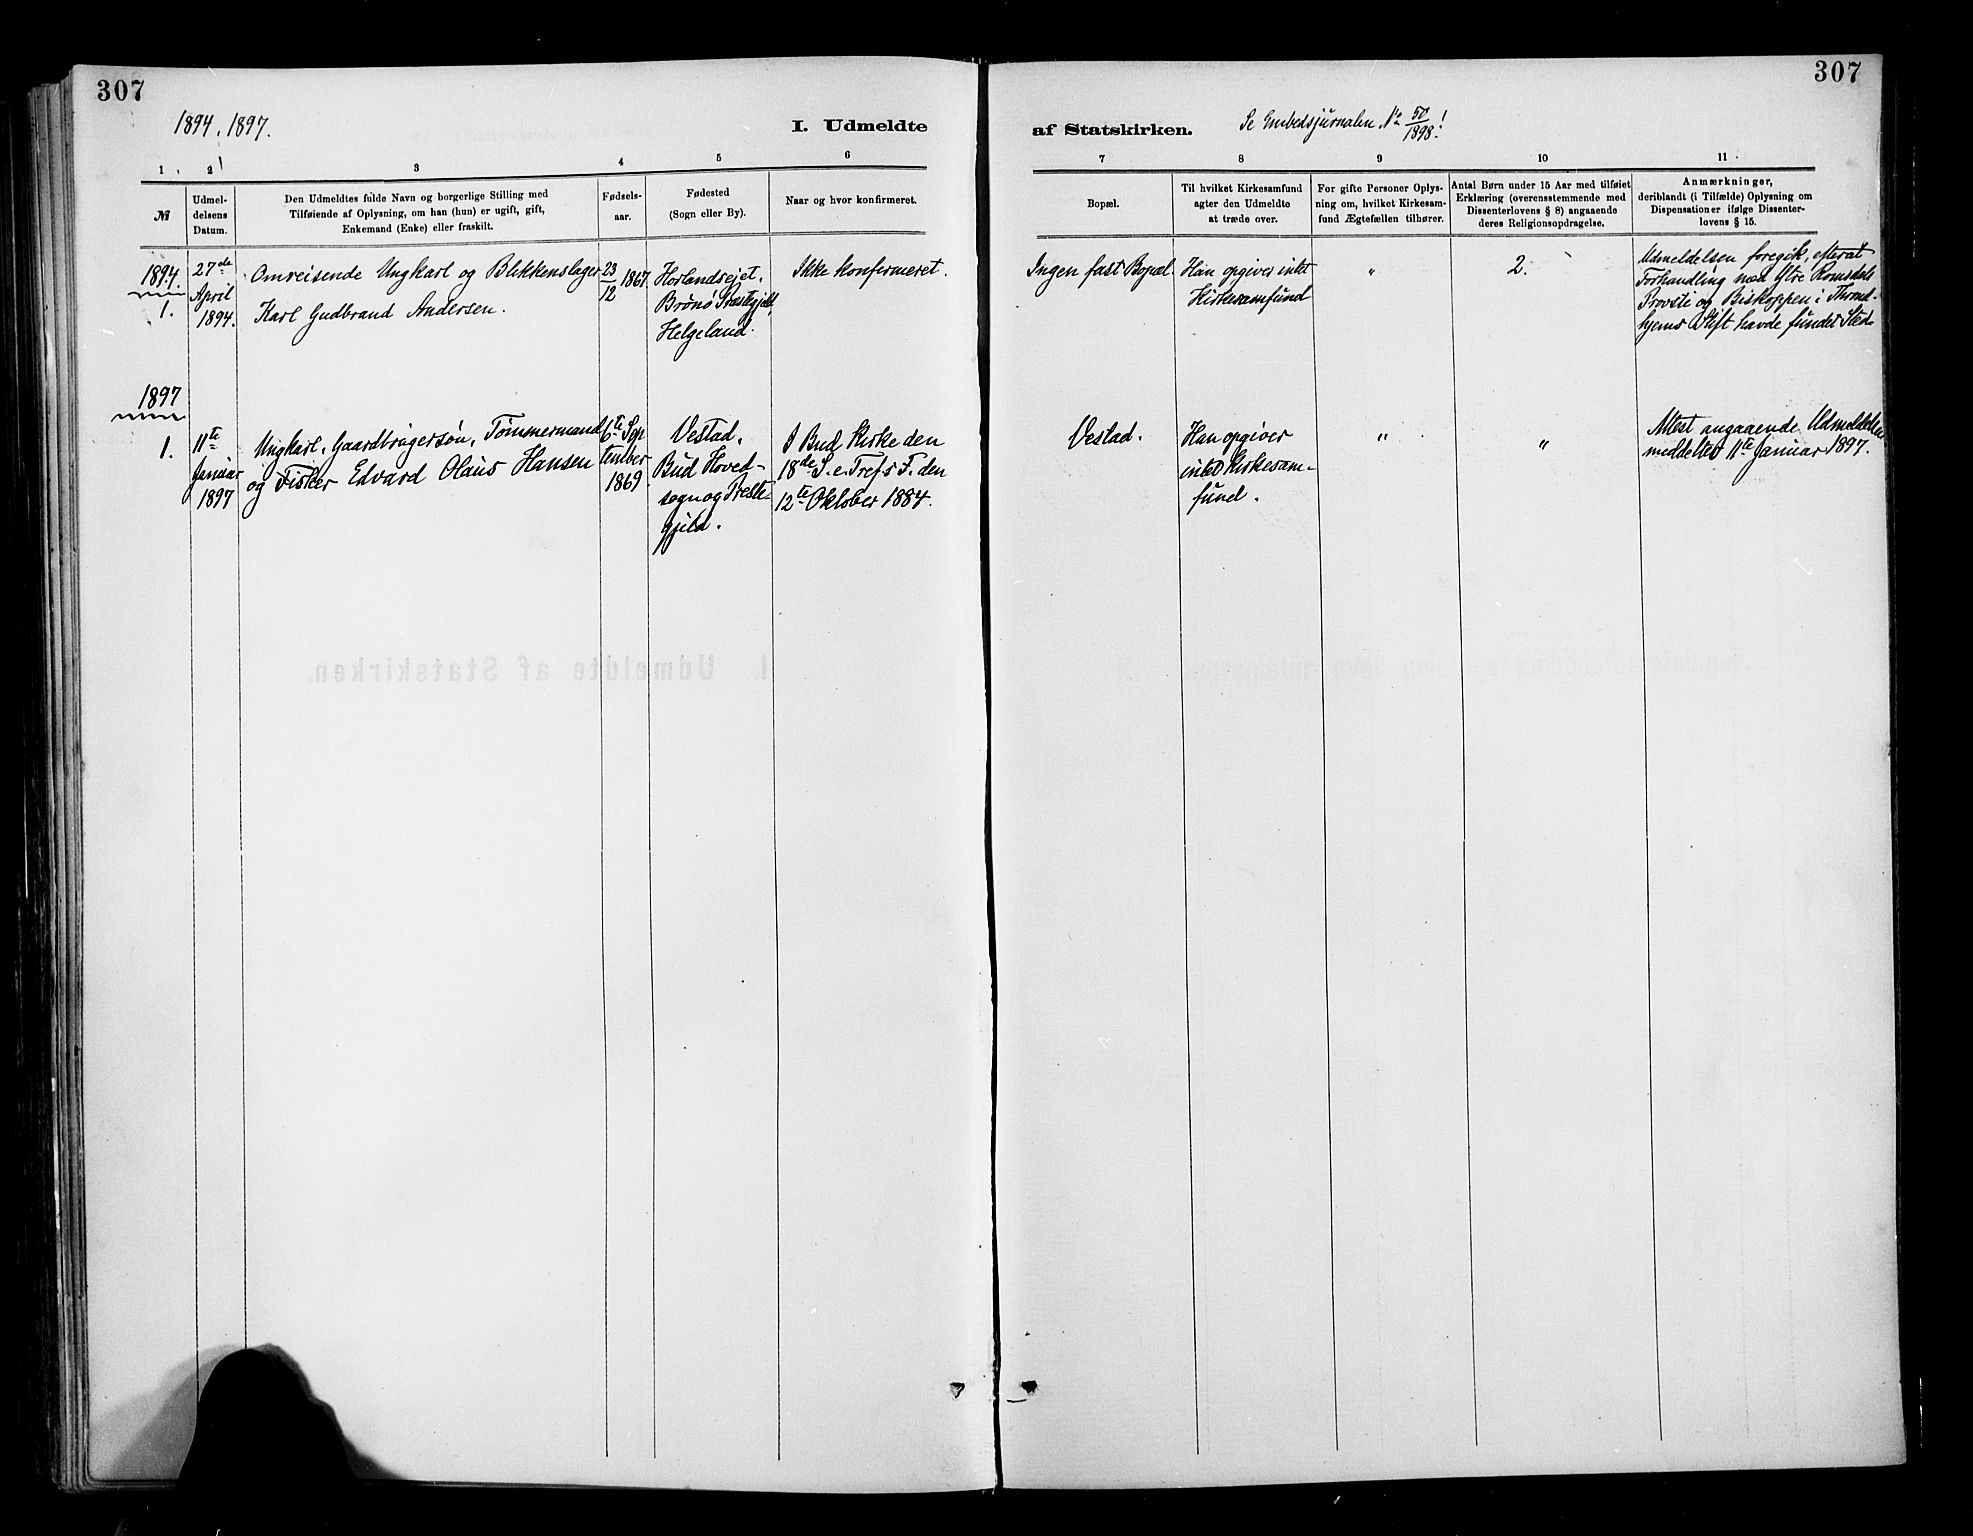 307
307
1894, 1897.
I. Udmeldte
af Statskirken.
Se Embedsjurnalen No 50/1898!
1
2
3
4
5
6
7
8
9
10
11
No
Udmel-
delsens
Datum.
Den Udmeldtes fulde Navn og borgerlige Stilling med
Tilføiende af Oplysning, om han (hun) er ugift, gift,
Enkemand (Enke) eller fraskilt.
Fødsels-
aar.
Fødested
(Sogn eller By).
Naar og hvor konfirmeret.
Bopæl.
Til hvilket Kirkesamfund
agter den Udmeldte
at træde over.
For gifte Personer Oplys-
ning om, hvilket Kirkesam-
fund Ægtefællen tilhører.
Antal Børn under 15 Aar med tilføiet
Erklæring (overensstemmende med
Dissenterlovens § 8) angaaende
deres Religionsopdragelse.
Anmærkninger,
deriblandt (i Tilfælde) Oplysning om
Dispensationer ifølge Dissenter-
lovens § 15.
1894.
1.
27de
April
1894.
Omreisende Ungkarl og Blikkenslager
Karl Gudbrand Andersen.
23/12 1867
Horlandsejet,
Brønø Præstegjeld,
Helgeland.
Ikke konfermeret.
Ingen fast Bopæl.
Han opgiver intet
Kirkesamfund
"
2.
Udmeldelsen foregik, efterat
Forhandling med Ytre Romsdals
Provsti og Biskoppen i Thrond-
hjems Stift havde fundet Sted.
1897
1.
11te
Januar
1897
Ungkarl, Gaardbrugersøn, Tømmermand
og Fisker Edvard Olaus Hansen
6te Sep
tember
1869.
Vestad,
Bud Hoved-
sogn og Præste-
gjeld.
I Bud Kirke den
18de S. e. Tref.s F. den
12te Oktober 1884.
Vestad.
Han opgiver
intet Kirkesam-
fund.
"
"
Attest angaaende Udmeldelsen
meddeltes 11te Januar 1897.
I. Udmeldte af Statskirken.